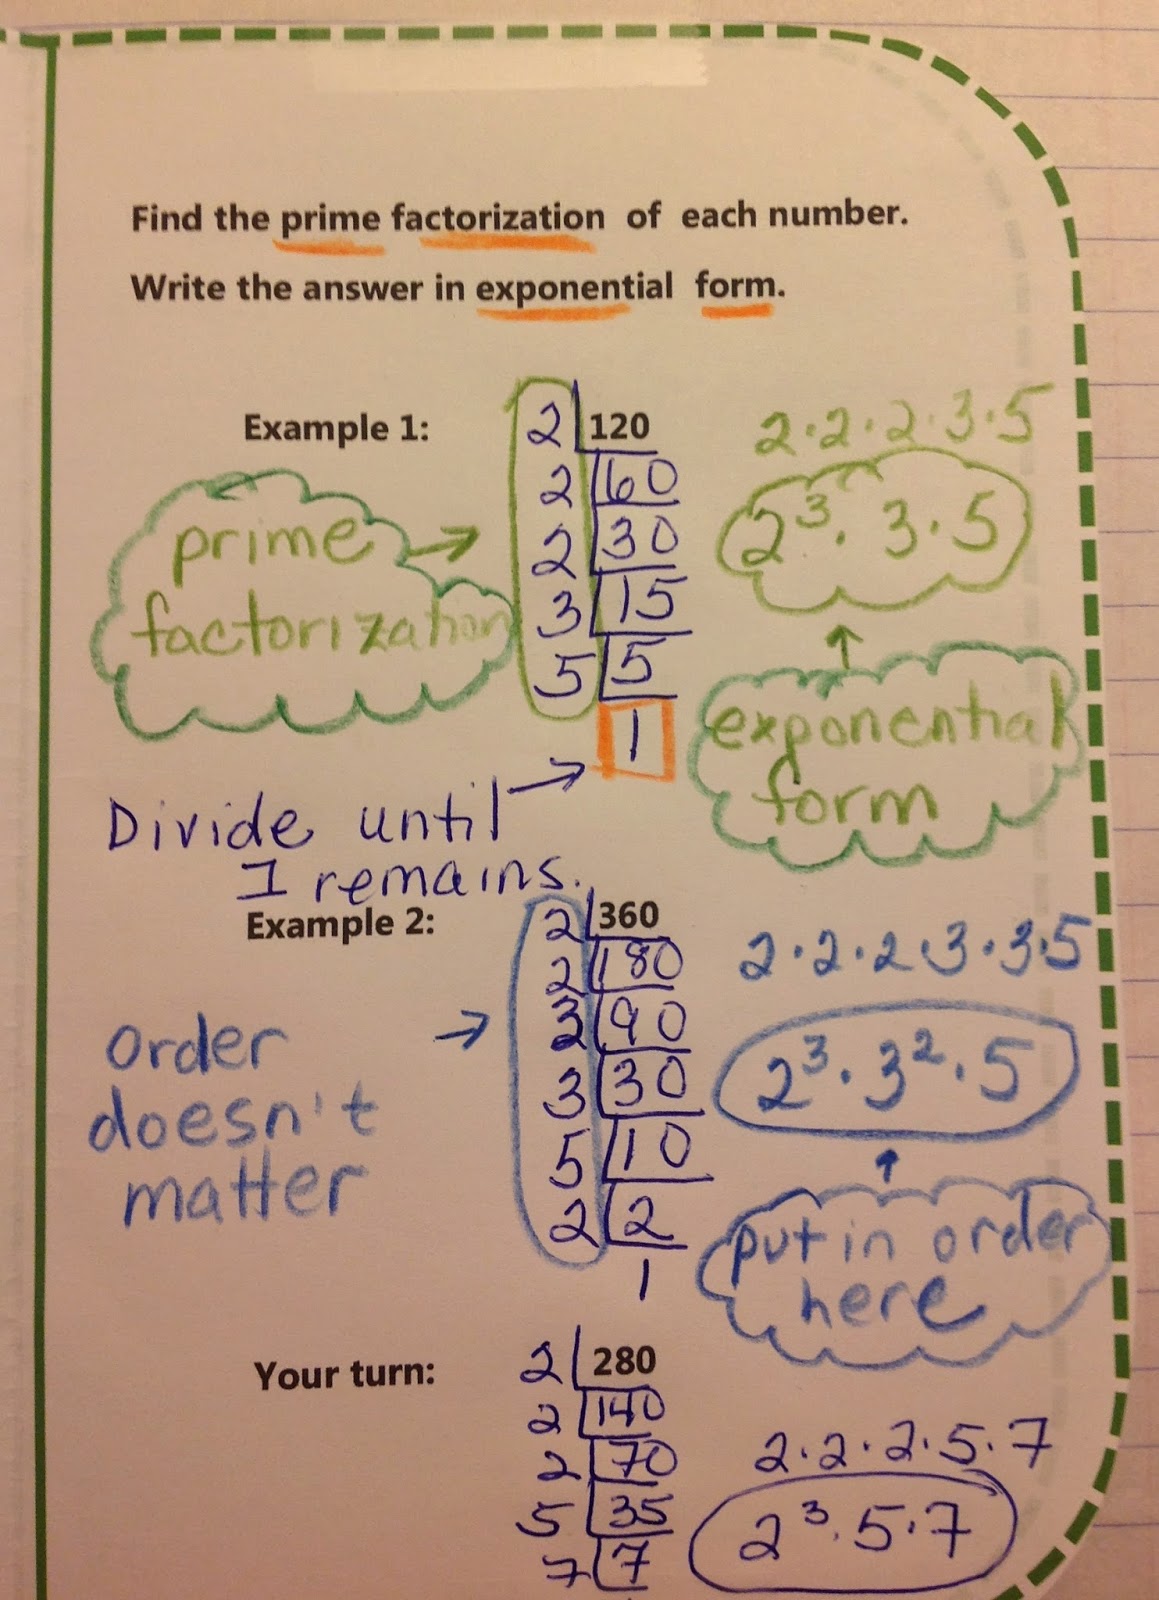 Find the prime factorization of each number.
Write the answer in exponential form.
Example 1:
2 120
2 60
2 30
3 15
5 5
1
2·2·2·3·5
2³·3·5
prime
factorization
exponential
form
Divide until
1 remains.
Example 2:
2 360
2 180
3 90
3 30
5 10
2 2
1
2·2·2·3·3·5
2³·3²·5
order
doesn't
matter
put in order
here
Your turn:
2 280
2 140
2 70
5 35
7 7
2·2·2·5·7
2³·5·7